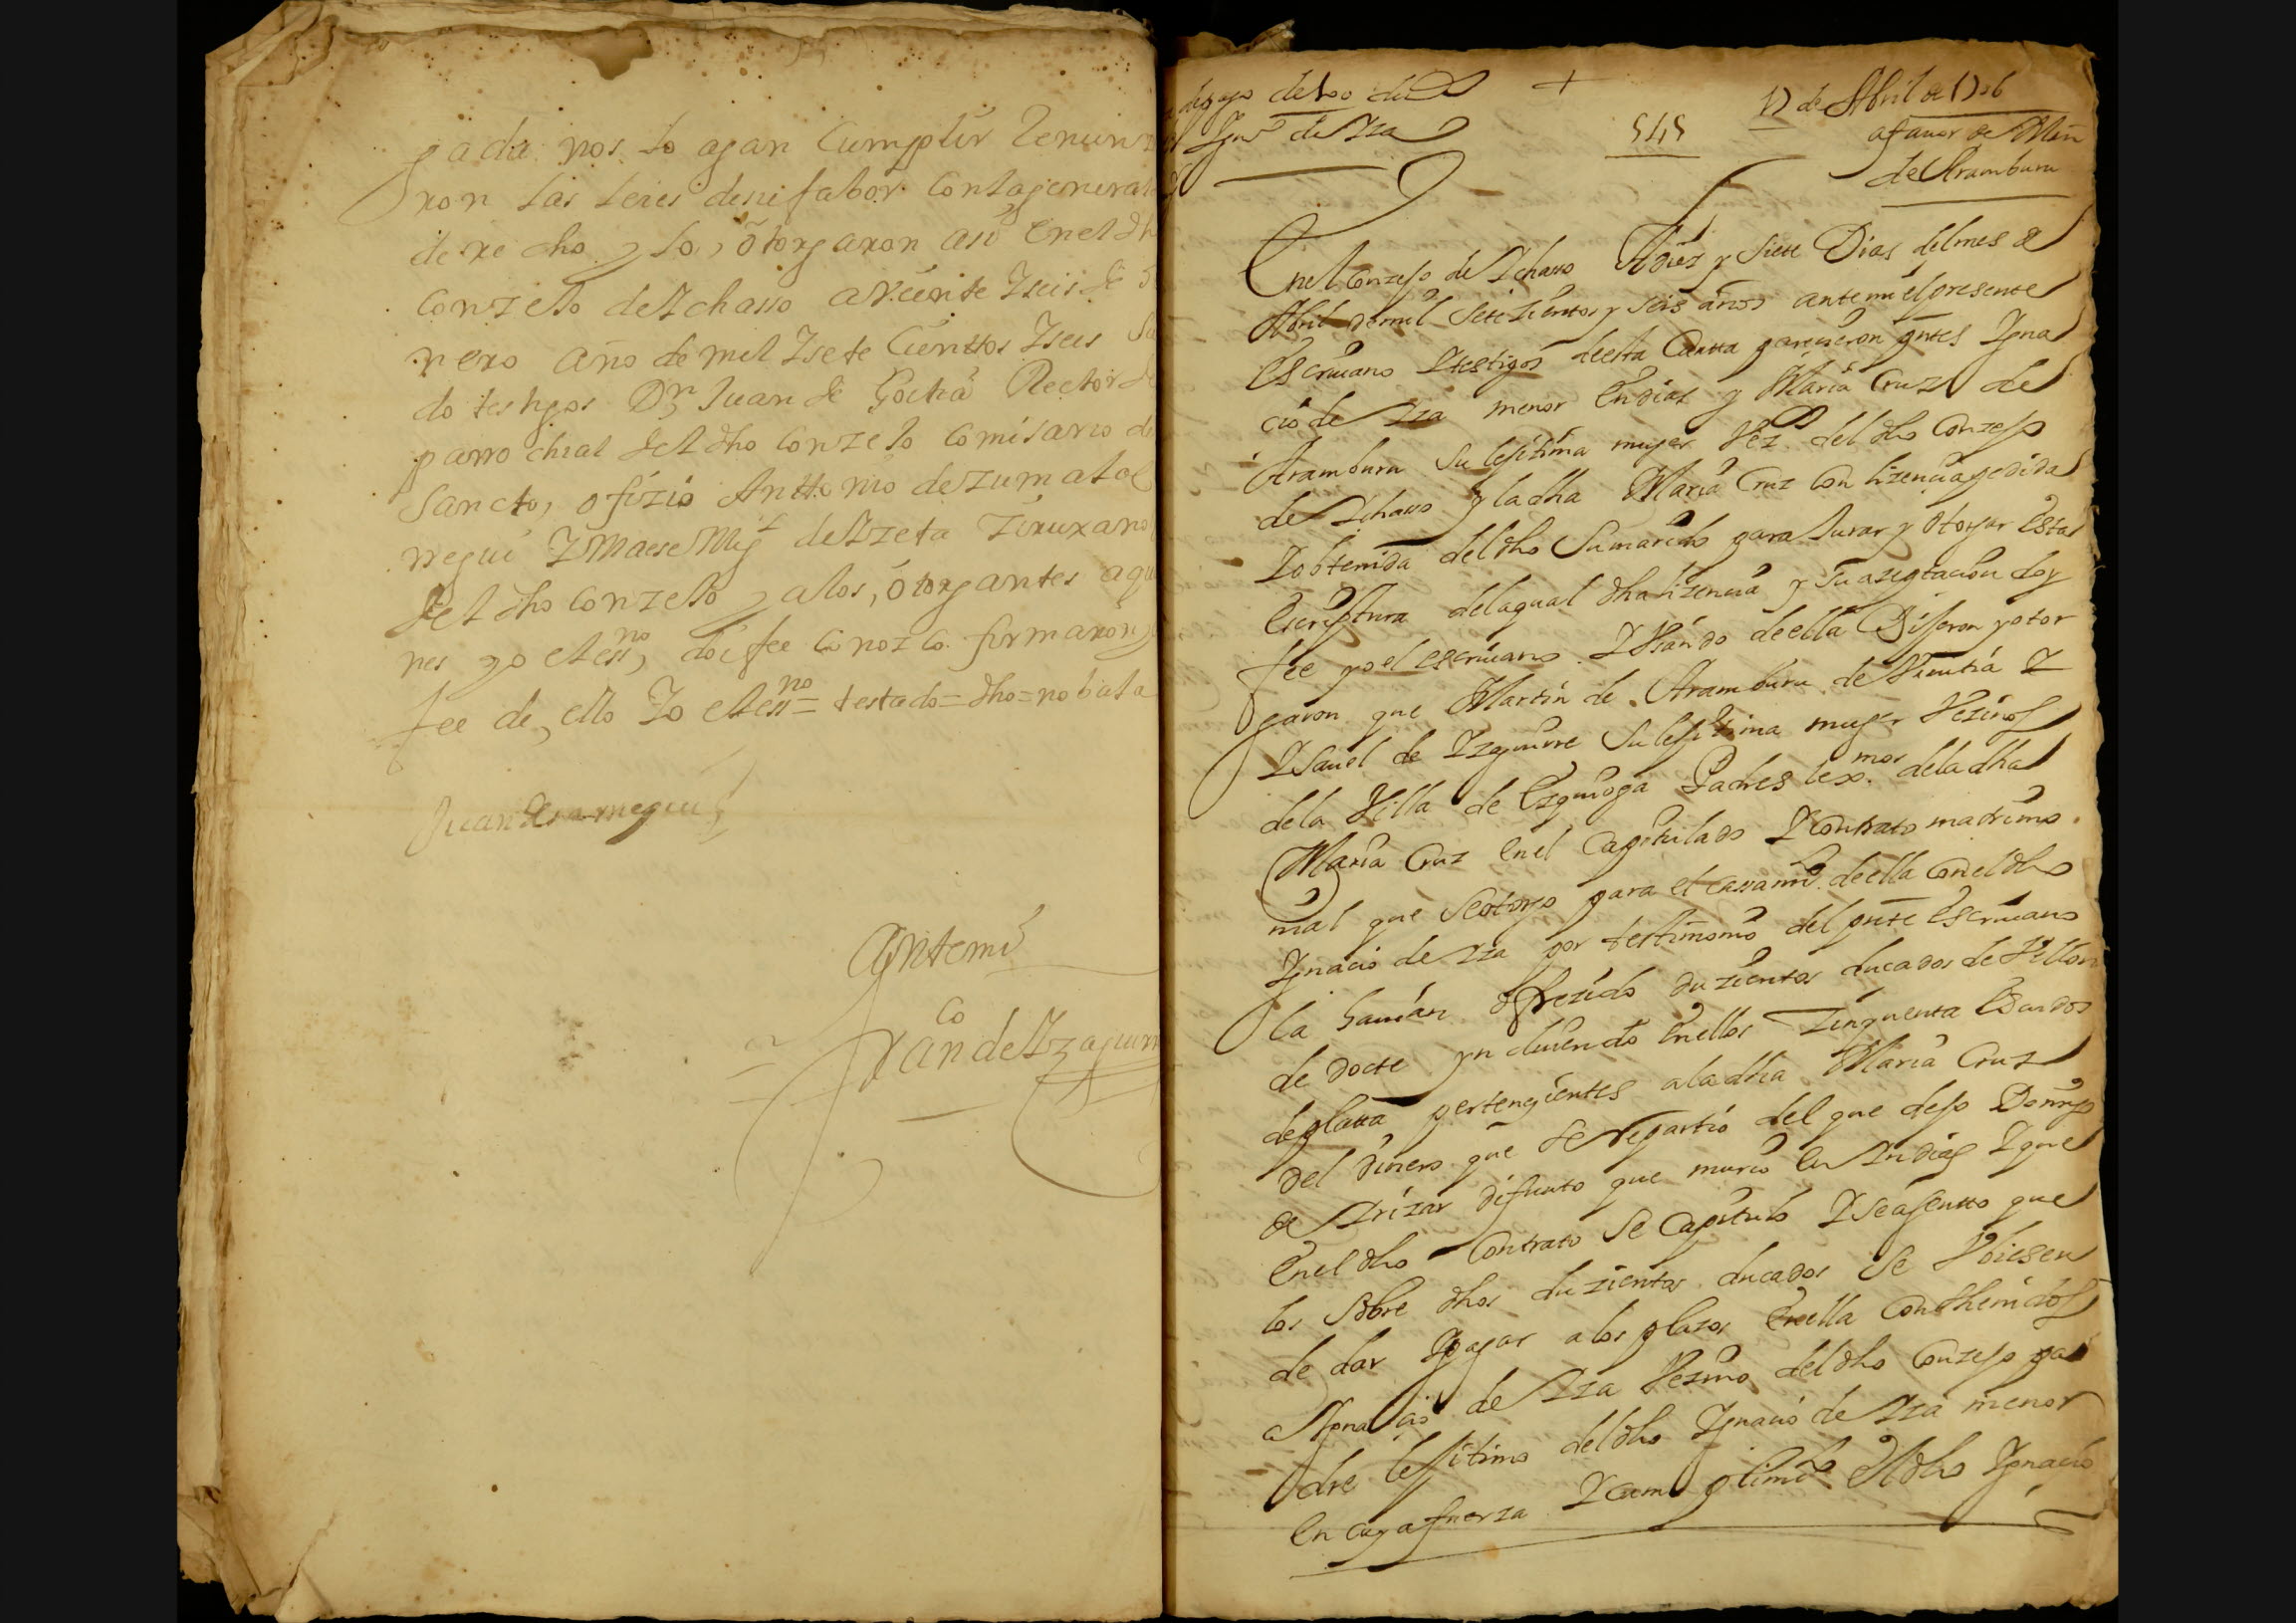 gada nos lo agan Cumplir Renun
xon las leies desufabor Conlageneral
derecho y lo, otorgaron asi Eneldh
Conzejo de Ychasso a veinte Yseis de
nero Año de mil Ysete Cienttos Yseis
do testigos Dn Juan de Goitia Rector de
parrochial del dho Conzejo Comisario d
Sancto, ofizio Anttonio de Zumala
rregui Y Maese Migl de Yzeta Ziruxano
del dho Conzejo, y alos, otorgantes aqu
nes yo elessno, doi fee Conozco firmaron
fee de, ello Yo elessno = testado = dho = no bala
Juan de
Antemi
Franco de Yzaguirr
de pago de 100 dus
Igno de Yza
+
545
17 de Abril de 1706
afauor de Min
de Aramburu
Enel Conzejo de Ychasso A diez y siete Dias delmes de
Abril demil Setezientos y seis años antemi elpresente
Escriuano Ytestigos deesta Cartta parecieron pntes Igna
cio de Yza menor Endias y Maria Cruz de
Aramburu su lexitima muger Vezs del dho Conzejo
de Ychasso y ladha Maria Cruz Con lizencia pedida
Y obtenida deldho Sumarido para Jurar y otorgar Esta
Escriptura delaqual dha lizencia y su azeptacion doy
fee yo el escriuano. Y Vsando deella Dijeron y otor
garon que Martin de Aramburu de Vicutia Y
Ysauel de Yzaguirre su lexitima muger Vezinos
dela Villa de Ezquioga Padres lexmos. deladha
Maria Cruz Enel Capitulado Y Contrato matrimo
nial que Seotorgo para el Cassamto. deella Coneldho
Ignacio de Yza por testimonio del pnte Escriuano
la hauian ofrezido duzientos ducados de Vellon
de docte ynduiendo Enellos Zinquenta Escudos
deplatta pertenecientes aladha Maria Cruz
del dinero que Se repartio del que dejo Domingo
de Yrizar difunto que murio En Yndias Y que
Eneldho Contrato Se Capitulo Y Seasentto que
los sobre dhos duzientos ducados Se Vbiesen
de dar Y pagar alos plazos Enella Conthenidos
a Ygnacio de Yza Vezino deldho Conzejo pa
dre lexitimo deldho Ygnacio de Yza menor
En cuya fuerza Y Cumplimto Eldho Ygnacio